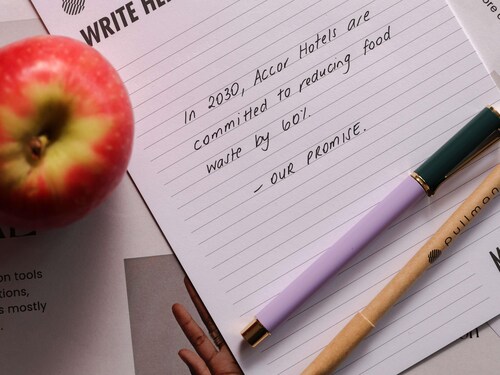 WRITE
In 2030, Accor Hotels are
committed to reducing food
waste by 60%.
- OUR PROMISE.
pullman
on tools
tions,
s mostly